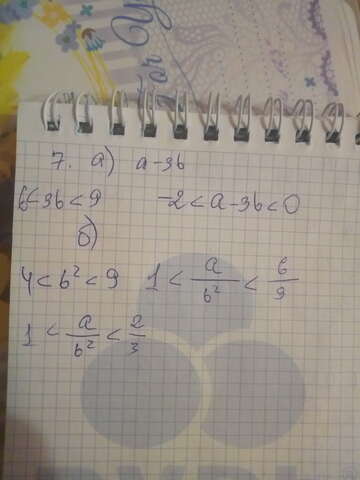 7. а) a-3b
6<-3b<9 -2<a-3b<0
б)
4<b²<9 1<a/b²<6/9
1<a/b²<2/3